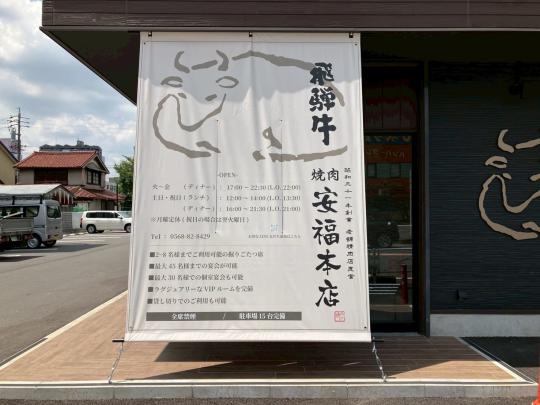 飛騨牛
焼肉 安福本店
昭和三十一年創業 老舗精肉店直営
-OPEN-
火~金 (ディナー) : 17:00~22:30(L.O.22:00)
土日・祝日(ランチ) : 12:00~14:00(L.O.13:30)
(ディナー) : 16:00~21:30(L.O.21:00)
※月曜定休(祝日の場合は翌火曜日)
Tel : 0568-82-8429
■2~8名様までご利用可能の掘りごたつ席
■最大45名様までの宴会が可能
■最大30名様での個室宴会も可能
■ラグジュアリーなVIPルームを完備
■貸し切りでのご利用も可能
全席禁煙 / 駐車場15台完備